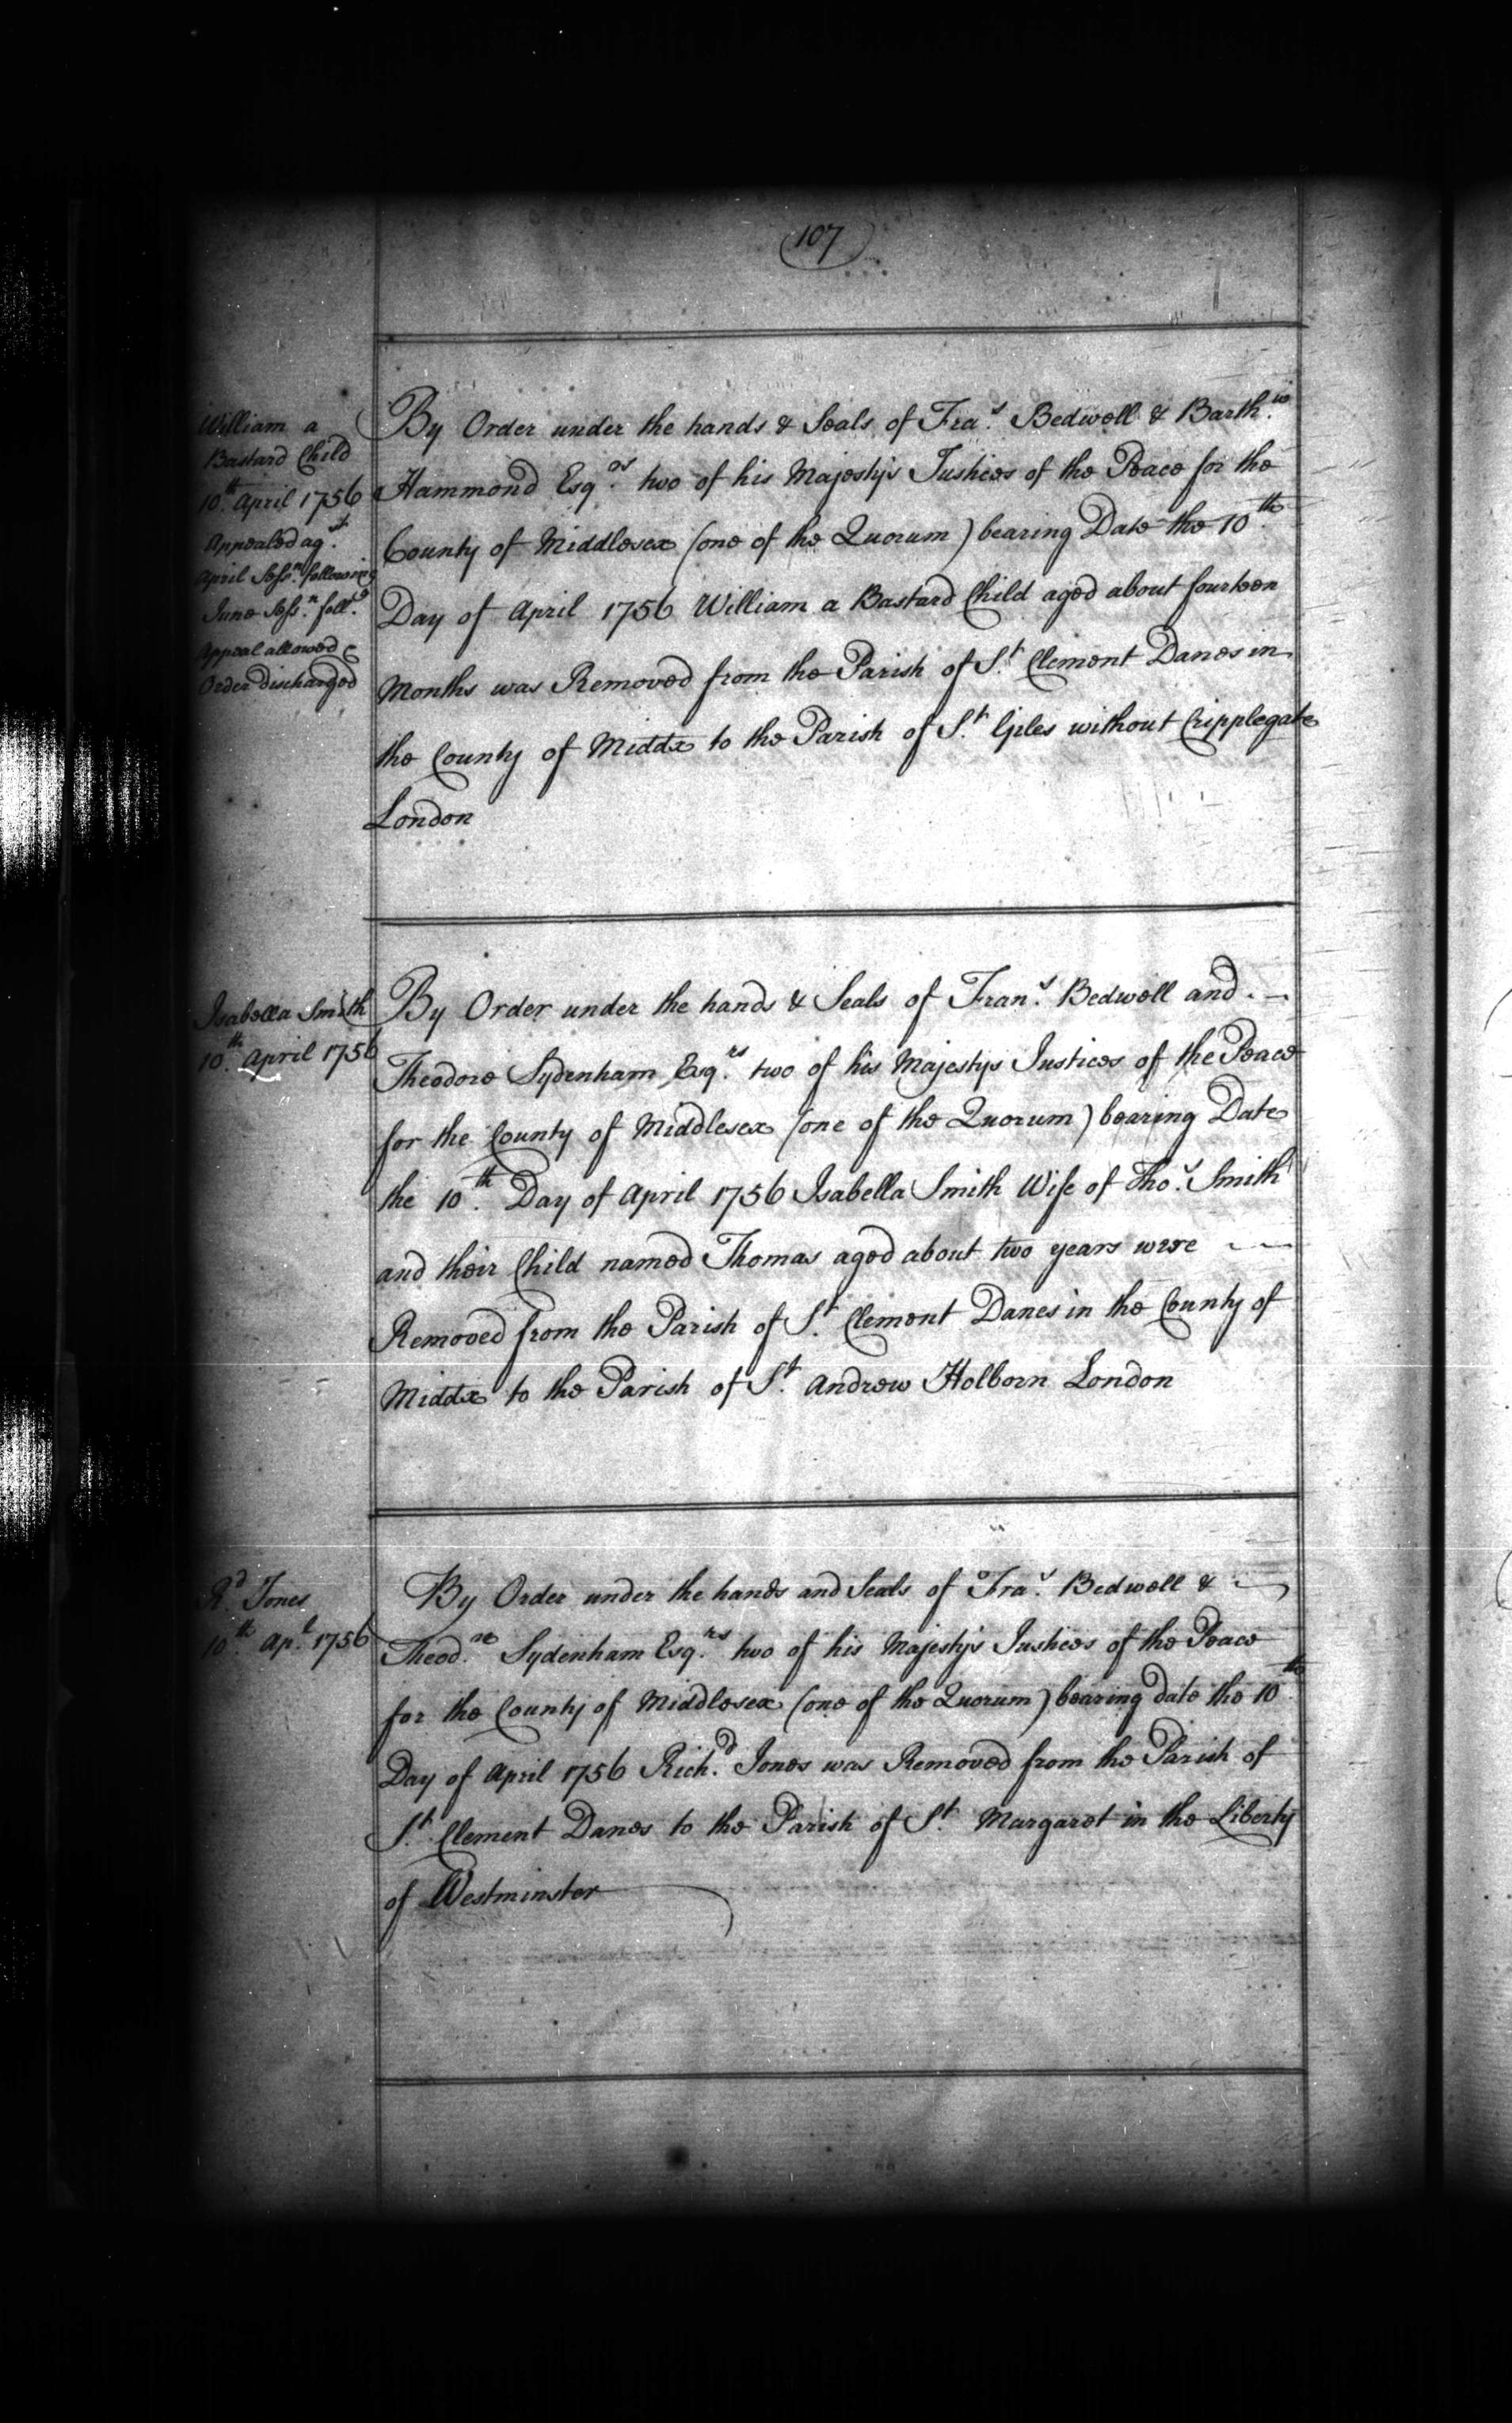 107
William a
Bastard Child
10th. April 1756
Appealed agst.
April Sessn. following
June Sessn. follg.
Appeal allowed &
Order discharged
By Order under the hands & Seals of Fras. Bedwell & Barthw.
Hammond Esqrs. two of his Majesty's Justices of the Peace for the
County of Middlesex (one of the Quorum) bearing Date the 10th.
Day of April 1756 William a Bastard Child aged about fourteen
Months was Removed from the Parish of St. Clement Danes in
the County of Middx to the Parish of St. Giles without Cripplegate
London
Isabella Smith
10th. April 1756
By Order under the hands & Seals of Frans. Bedwell and
Theodore Sydenham Esqrs. two of his Majestys Justices of the Peace
for the County of Middlesex (one of the Quorum) bearing Date
the 10th. Day of April 1756 Isabella Smith Wife of Thos. Smith
and their Child named Thomas aged about two years were
Removed from the Parish of St. Clement Danes in the County of
Middx to the Parish of St. Andrew Holborn London
Rd. Jones
10th Apl. 1756
By Order under the hands and Seals of Fras. Bedwell &
Theodre. Sydenham Esqrs. two of his Majesty's Justices of the Peace
for the County of Middlesex (one of the Quorum) bearing date the 10th.
Day of April 1756 Richd. Jones was Removed from the Parish of
St. Clement Danes to the Parish of St. Margaret in the Liberty
of Westminster